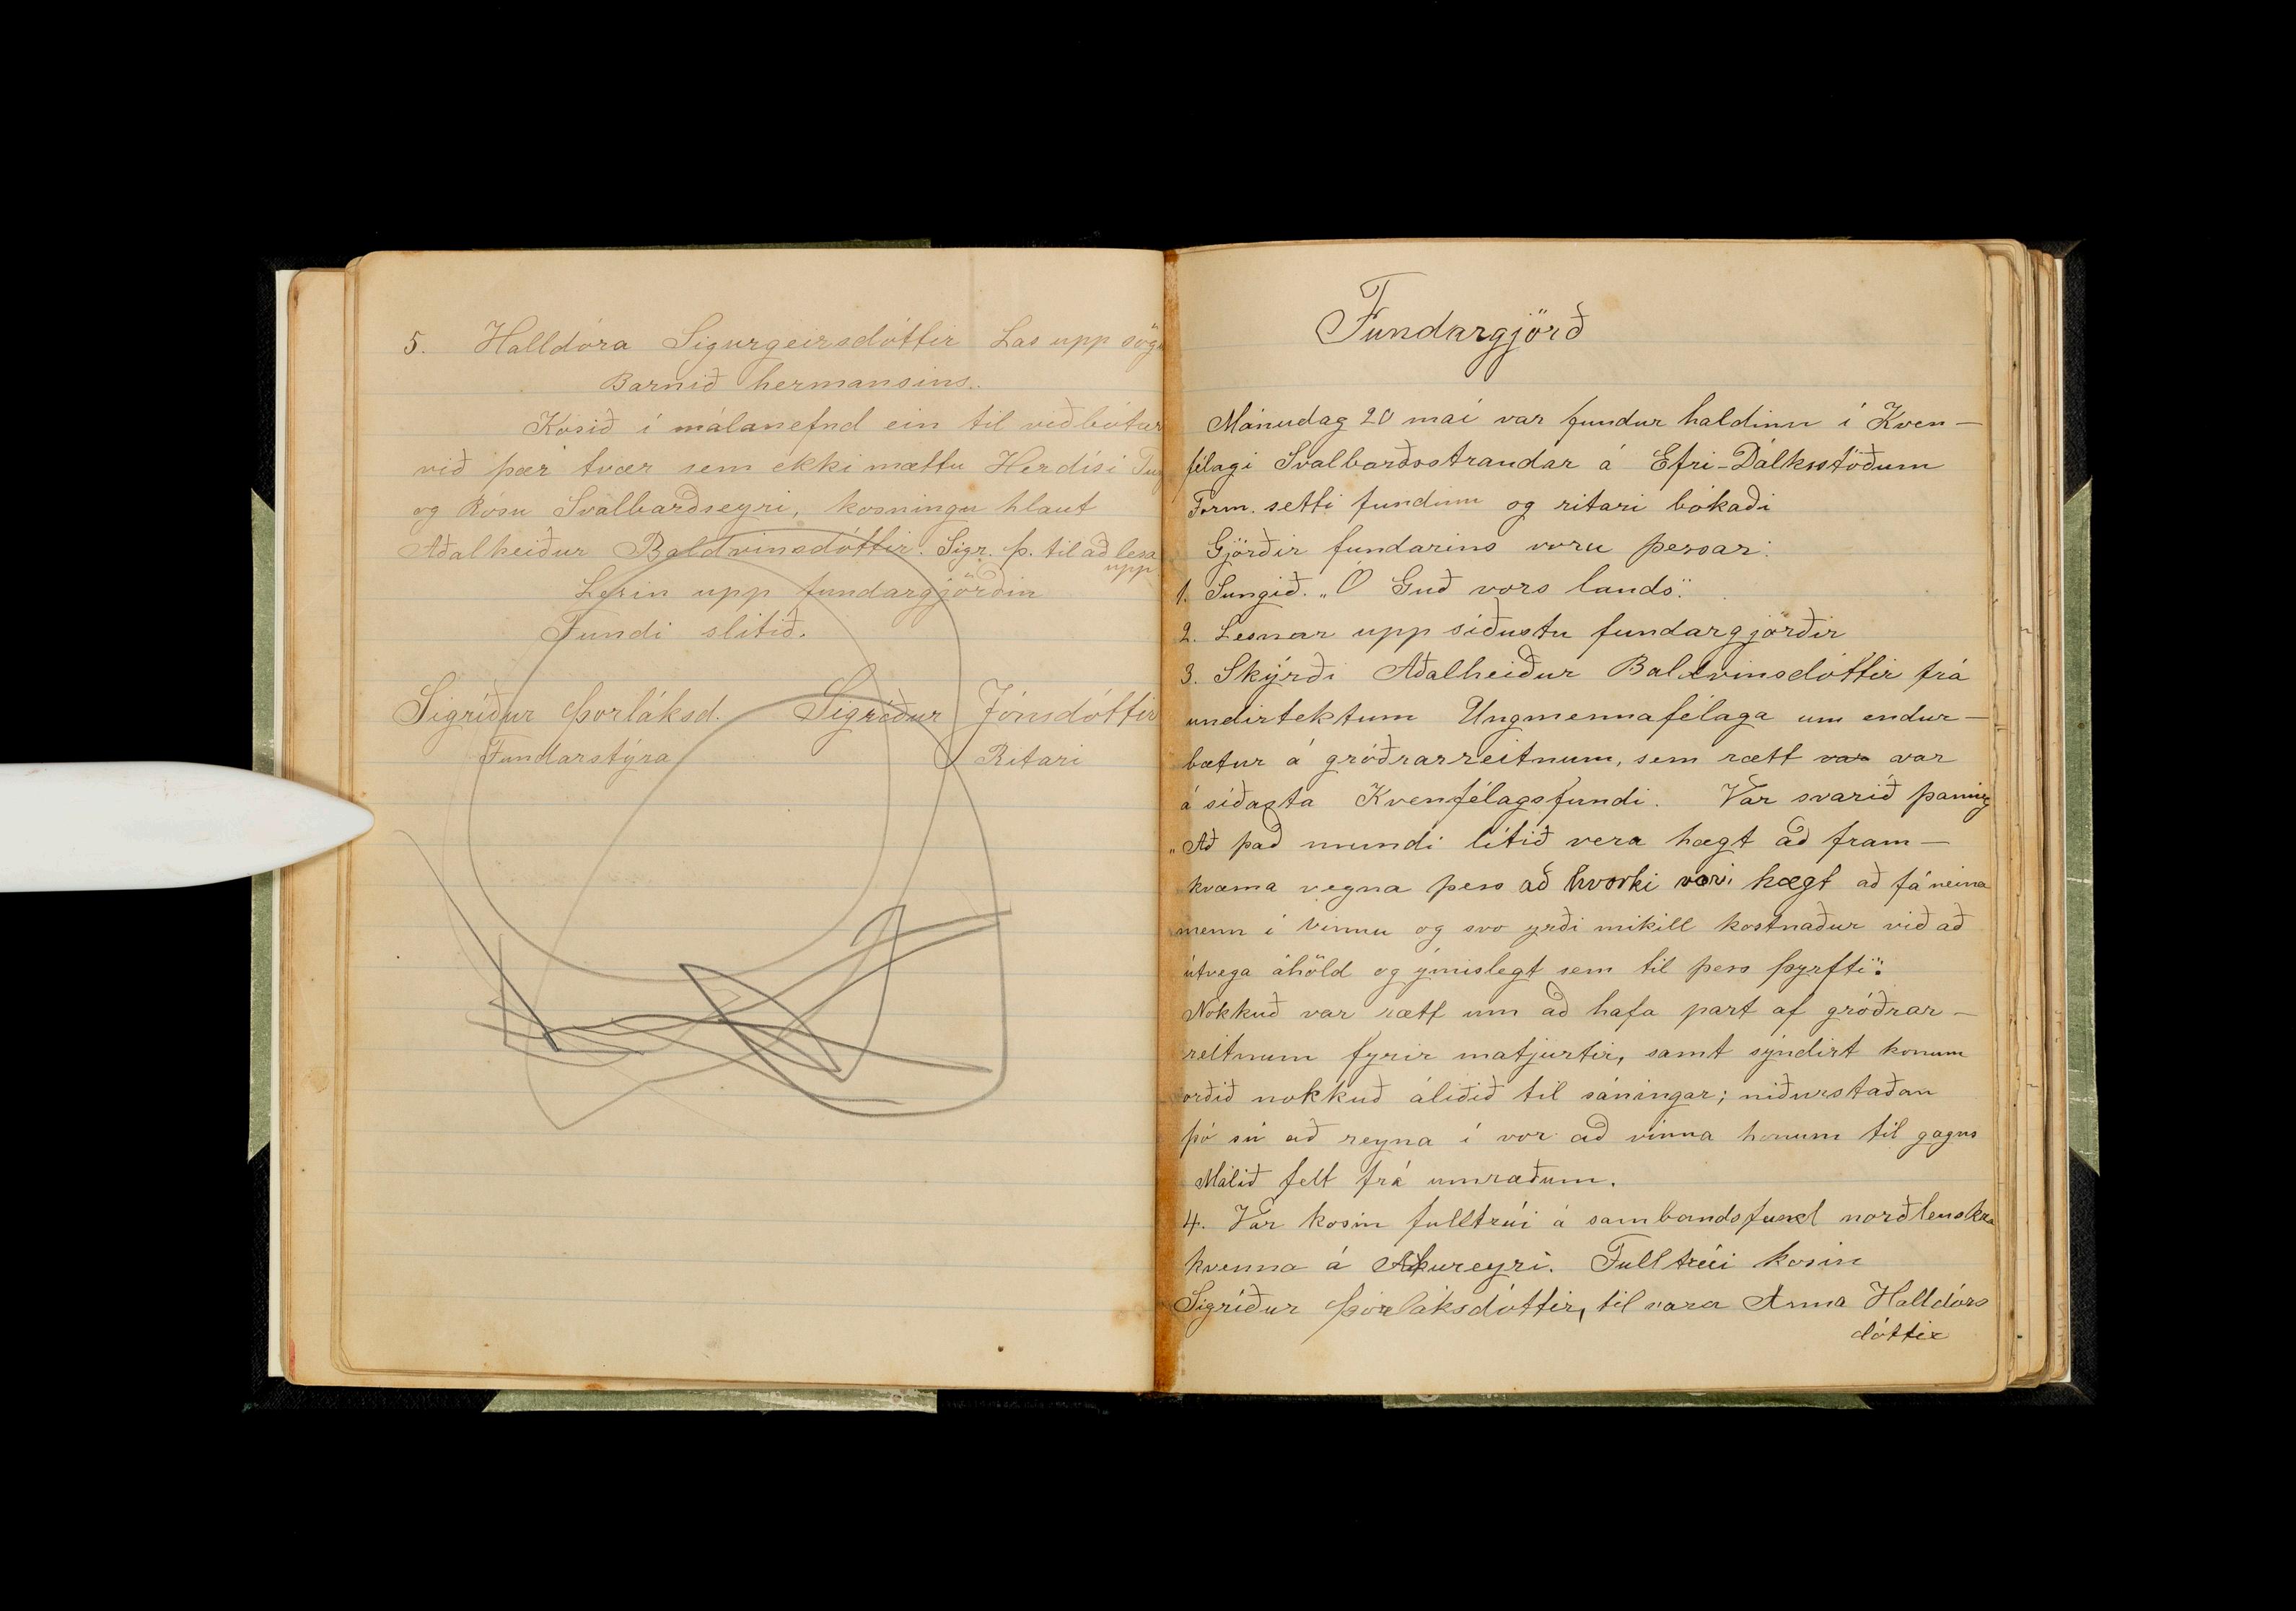 5. Halldóra Sigurgeirsdóttir Las upp sögu
Barnið hermansins.
Kosið í málanefnd ein til viðbótar
við þær tvær sem ekki mættu Herdísi
og Rósu Svalbarðseyri, kosningu hlaut
Aðalheiður Baldvinsdóttir. Sigr. Þ. til að lesa
upp
Lesin upp fundargjörðin
Fundi slitið.
Sigríður Þorláksd. Sigríður Jónsdóttir
Fundarstýra Ritari
Fundargjörð
Mánudag 20 maí var fundur haldinn í Kven-
félagi Svalbarðsstrandar á Efri-Dálksstöðum
Form. setti fundinn og ritari bókaði
Gjörðir fundarins voru þessar:
1. Sungið. „Ó Guð vors lands".
2. Lesnar upp síðustu fundargjörðir
3. Skýrði Aðalheiður Baldvinsdóttir frá
undirtektum Ungmennafélaga um endur-
bætur á gróðrarreitnum, sem rætt var var
á síðasta Kvenfélagsfundi. Var svarið þannig
„Að það mundi lítið vera hægt að fram-
kvæma vegna þess að hvorki væri hægt að fá neina
menn í vinnu og svo yrði mikill kostnaður við að
útvega áhöld og ýmislegt sem til þess þyrfti".
Nokkuð var rætt um að hafa part af gróðrar-
reitnum fyrir matjurtir, samt sýndist konum
orðið nokkuð áliðið til sáningar; niðurstaðan
þó sú að reyna í vor að vinna honum til gagns
Málið felt frá umræðum.
4. Var kosin fulltrúi á sambandsfund norðlenskra
kvenna á Akureyri. Fulltrúi kosin
Sigríður Þorláksdóttir, til vara Anna Halldórs
dóttir